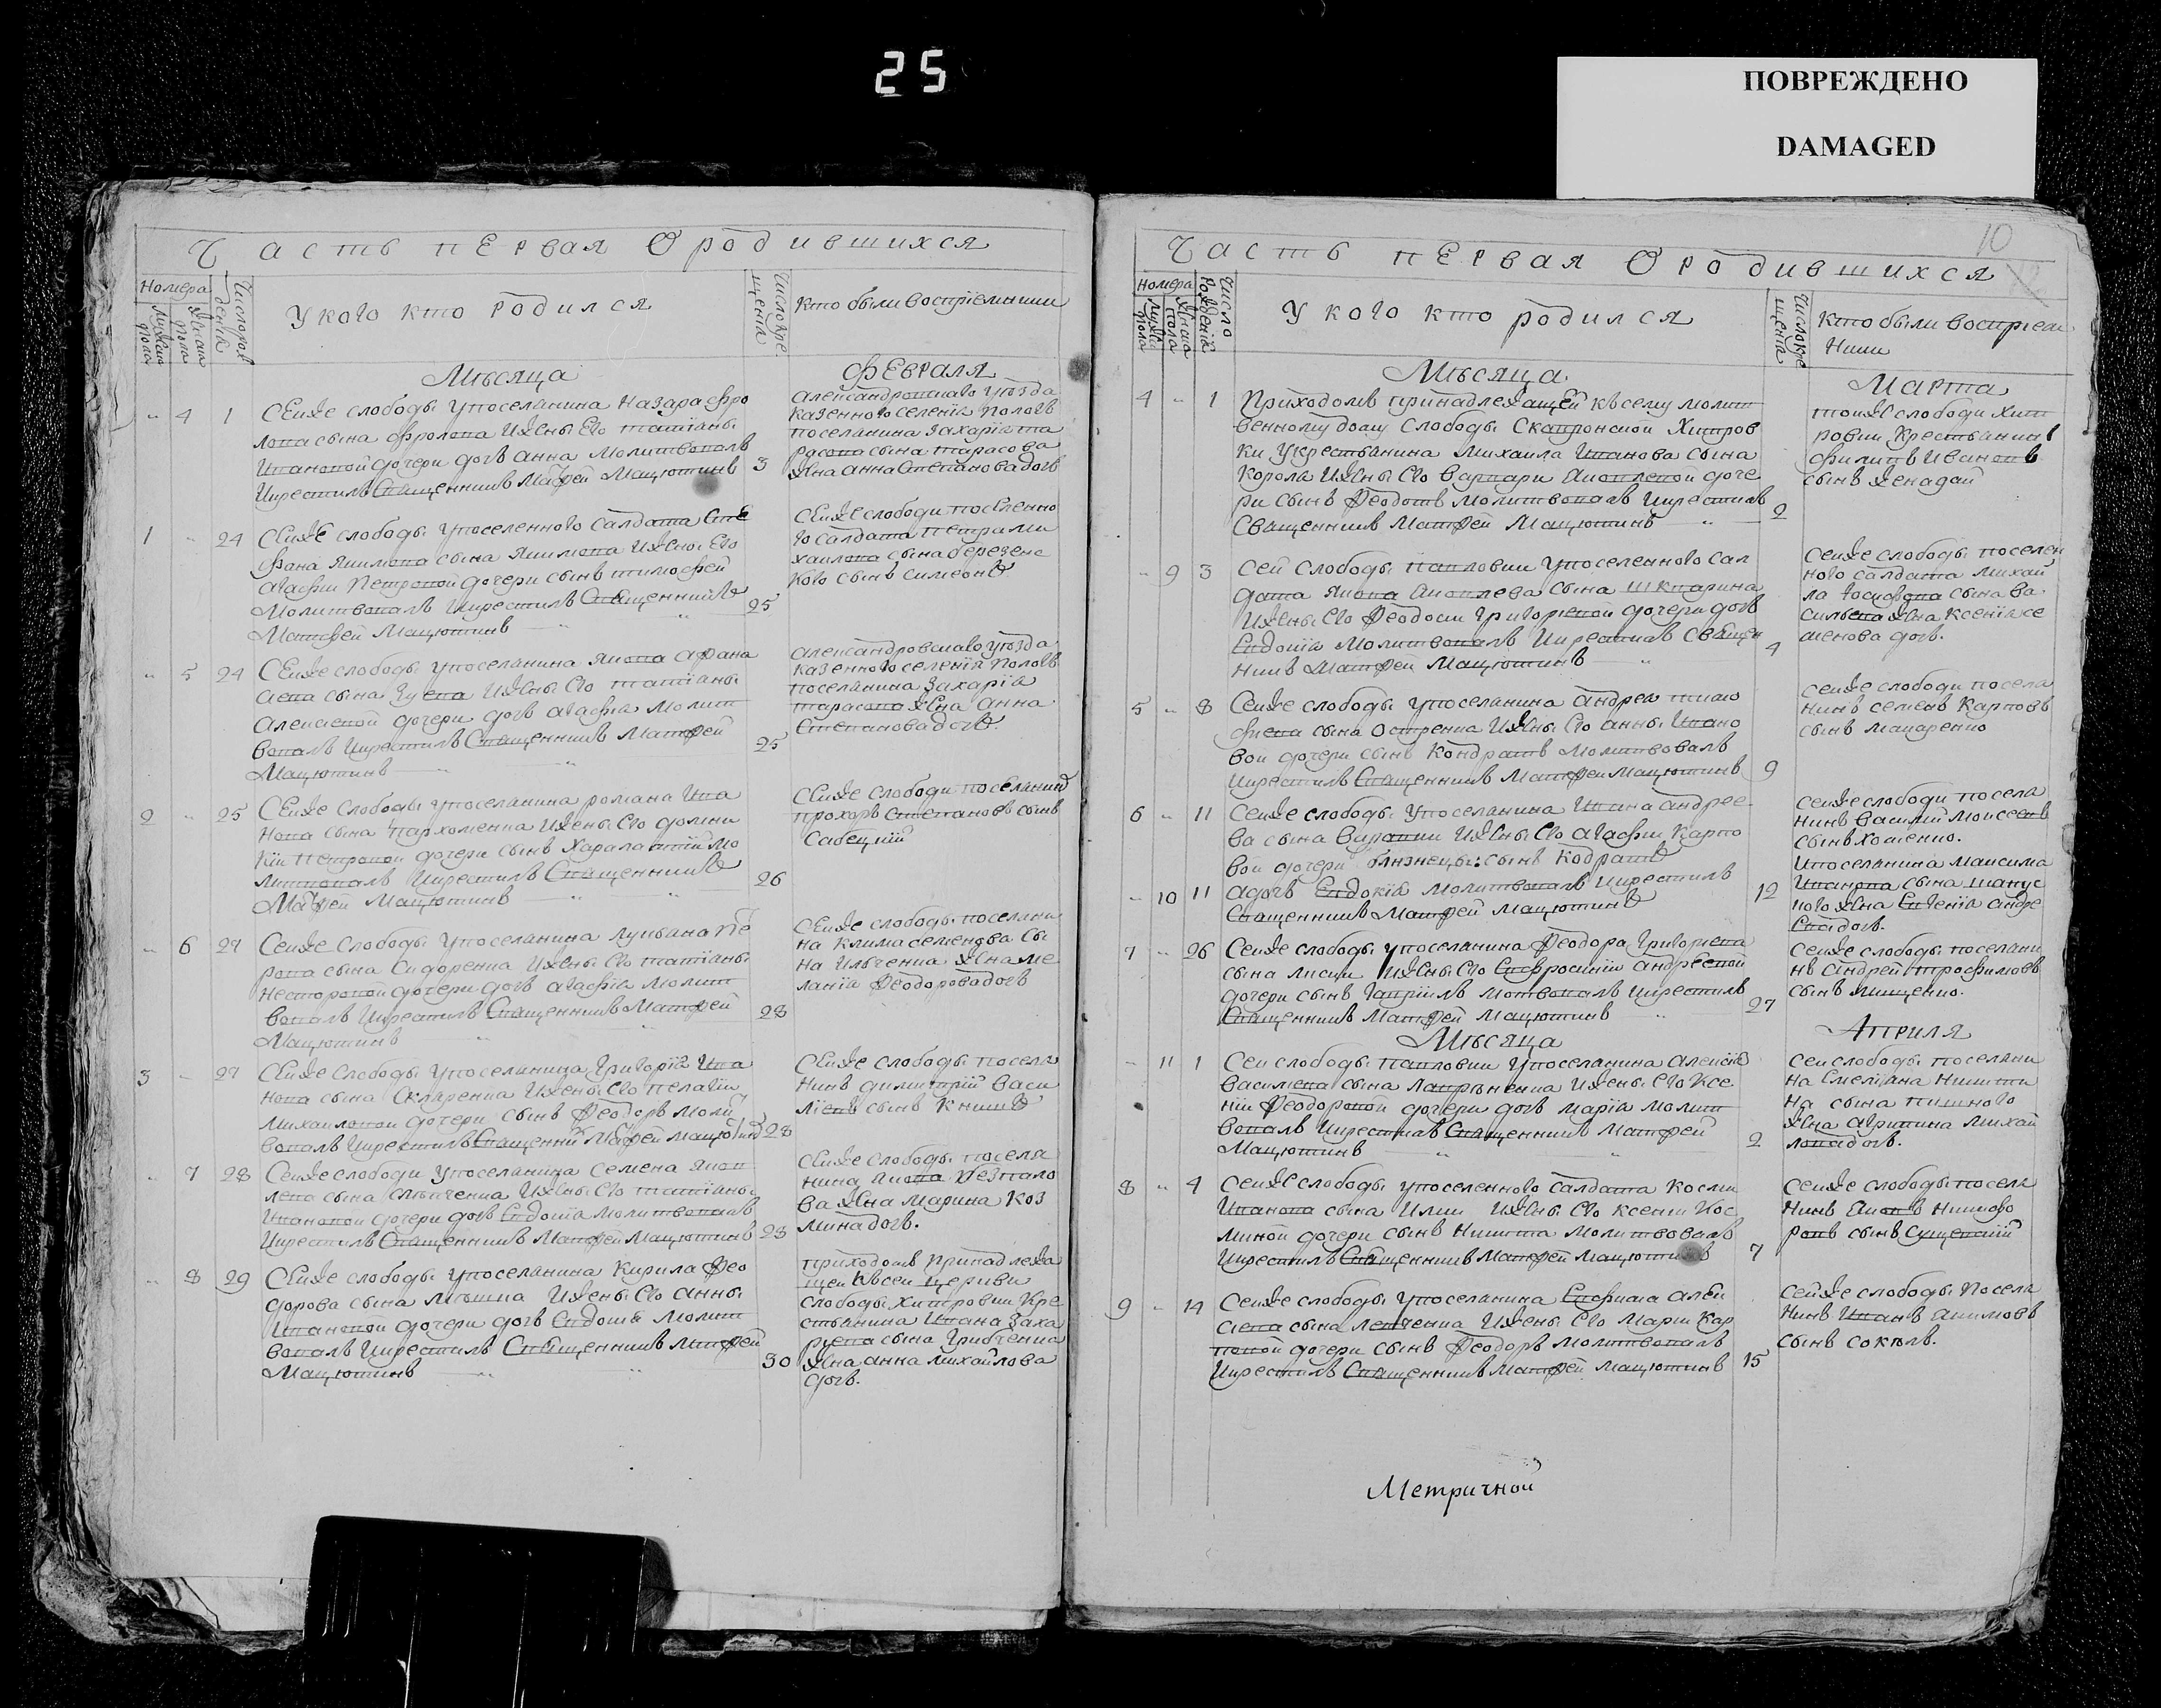 25
ПОВРЕЖДЕНО
DAMAGED
Часть первая О родившихся
Номера
Мужеска пола
Женска пола
Число рождения
У кого кто родился
Число крещенія
Кто были воспріемники
Мѣсяца
Февраля
4 1
Сеиже слободы у поселянина Назара Фро
лова сына Фролова и жены его татіаны
Ивановой дочери дочь анна молитвовалъ
и крестилъ Священникъ Матфей Мацютинъ 3
александровскаго уѣзда
казеннаго селенія пологъ
поселянина захаріа та
расова сына тарасова
жена анна Степанова дочь
1 24
Сеиже слободы у поселенного салдата Сте
фана якимова сына якимова и жены его
агафіи Петровой дочери сынъ тимофей
Молитвовалъ и крестилъ Священникъ 25
Матфей Мацютинъ
Сеиже слободи поселенно
го салдата петра ми
хаилова сына березенс
кого сынъ симеонъ
5 24
Сеиже слободы у поселянина якова афана
сиева сына гуева и жены его татіаны
алексиевой дочери дочь агафіа молит
вовалъ и крестилъ Священникъ Матфей 25
Мацютинъ
александровскаго уѣзда
казенного селенія пологъ
поселянина захаріа
тарасова жена анна
Степанова дочь
2 25
Сеиже слободы у поселянина романа Ива
нова сына пархоменка и жены его домни
кіи петровой дочери сынъ харалампій мо
литвовалъ и крестилъ Священникъ 26
Матфей Мацютинъ
Сеиже слободи поселянинъ
прохоръ Степановъ сынъ
Сабецкій
6 27
Сеиже слободы у поселянина лукьана пе
рова сына Сидоренка и жены его татіаны
несторовой дочери дочь агафіа молит
вовалъ и крестилъ Священникъ Матфей 28
Мацютинъ
Сеиже слободы поселяни
на клима семенова сы
на Ильченка жена ме
ланіа Феодорова дочь
3 27
Сеиже слободы у поселянина Григоріа Ива
нова сына Скляренка и жены его пелагіи
михаиловой дочери сынъ Феодоръ молит
вовалъ и крестилъ Священникъ Матфей Мацютинъ 28
Сеиже слободы поселя
нинъ димитрій Васи
ліевъ сынъ Книшъ
7 28
Сеиже слободи у поселянина семена яков
лева сына слѣпченка и жены его татіаны
Ивановой дочери дочь Евдокіа молитвовалъ
и крестилъ Священникъ Матфей Мацютинъ 29
Сеиже слободы поселя
нина якова безпало
ва жена Марина Коз
мина дочь.
8 29
Сеиже слободы у поселянина Кирила Фео
дорова сына мѣшка и жены его анны
Ивановой дочери дочь Евдокіа молит
вовалъ и крестилъ Священникъ Матфей 30
Мацютинъ
приходомъ принадлежа
щей къ сей церкви
слободы хитровки кре
стьянина Ивана заха
риева сына Грибченка
жена анна михайлова
дочь.
10
Часть первая О родившихся
Номера
Мужеска пола
Женска пола
Число рожденія
У кого кто родился
Число крещенія
Кто были воспріем
ники
Мѣсяца
Марта
4 1
Приходомъ принадлежащей къ сему молит
венному дому Слободы Скатронской Хитров
ки у крестьянина Михаила Иванова сына
Корола и жены его варвары яковлевой доче
ри сынъ Феодотъ молитвовалъ и крестилъ 2
Священникъ Матфей Мацютинъ
тоиже слободи Хит
ровки Крестьянинъ
Филипъ Ивановъ
сынъ Женадай
9 3
Сей слободы павловки у поселенного сал
дата якова яковлева сына шкварина
и жены его Феодосіи Григориевой дочери дочь
Евдокіа молитвовалъ и крестилъ Священ 4
никъ Матфей Мацютинъ
Сеиже слободы поселен
ного салдата михай
ла Іосифова сына ва
сильева жена Ксеніа се
менова дочь.
5 8
Сеиже слободы у поселянина андрея тимо
фиева сына остренка и жены его анны Ивано
вой дочери сынъ Кондратъ молитвовалъ
и крестилъ Священникъ Матфей Мацютинъ 9
Сеиже слободи посела
нинъ семенъ Карповъ
сынъ макаренко
6 11
Сеиже слободы у поселянина Ивана андрее
ва сына Виравки и жены его агафіи Карпо
вой дочери близнецы: сынъ Кодратъ
10 11
а дочь Евдокіа молитвовалъ и крестилъ 12
Священникъ Матфей Мацютинъ
Сеиже слободи посела
нинъ василій Моисеевъ
сынъ хоменко.
И поселянина максима
Иванова сына шапус
ного жена Евгеніа андре
ева дочь.
7 26
Сеиже слободы у поселянина Феодора Григориева
сына лисци и жены его Евфросиніи андреевой
дочери сынъ гавріилъ мотвовалъ и крестилъ 27
Священникъ Матфей Мацютинъ
Сеиже слободы поселяни
нъ андрей трофимовъ
сынъ мищенко.
Мѣсяца
Априля
11 1
Сеи слободы павловки у поселянина алексіа
василиева сына лавриненка и жены его Ксе
ніи Феодоровой дочери дочь маріа молит
вовалъ и крестилъ Священникъ Матфей 2
Мацютинъ
Сеи слободы поселяни
на Емеліана никити
на сына пишного
жена агрипина михай
лова дочь.
8 4
Сеиже слободы у поселенного салдата Косми
Иванова сына Илки и жены его ксении Кос
миной дочери сынъ Никита молитвовалъ
и крестилъ Священникъ Матфей Мацютинъ 7
Сеиже слободы поселя
нинъ яковъ никифо
ровъ сынъ Сущевскій
9 14
Сеиже слободы у поселянина Евфима алек
сиева сына левченка и жены его маріи Кар
повой дочери сынъ Феодоръ молитвовалъ
и крестилъ Священникъ Матфей Мацютинъ 15
Сеиже слободы посела
нинъ Иванъ акимовъ
сынъ соколъ.
Метричной